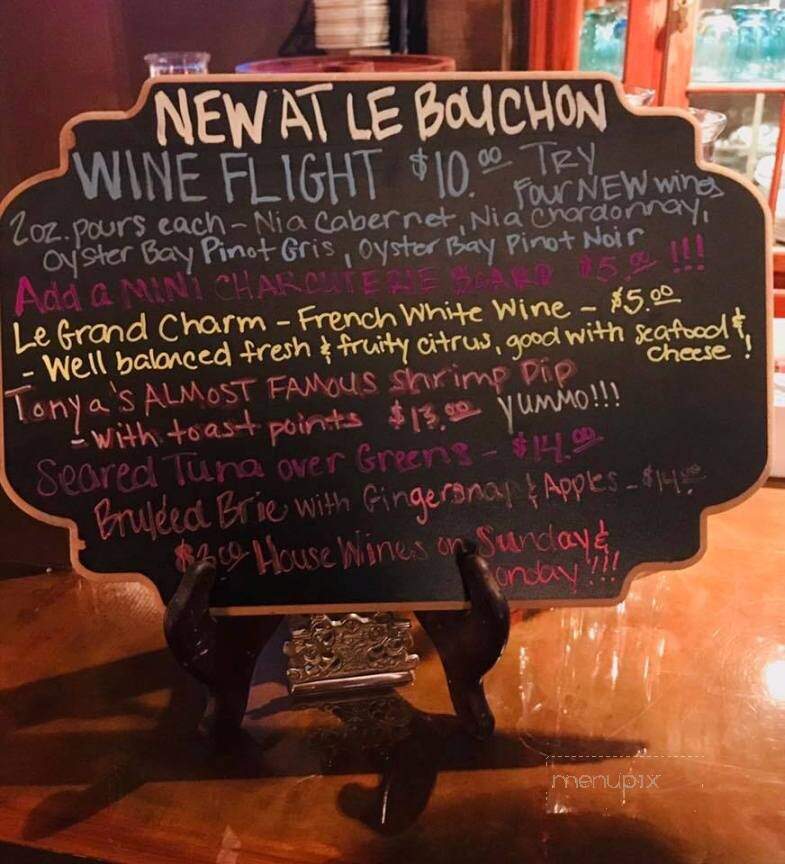 NEW AT LE BOUCHON
WINE FLIGHT $10.00 TRY
FOUR NEW wines
2oz. pours each - Nia Cabernet, Nia Chardonnay,
Oyster Bay Pinot Gris, Oyster Bay Pinot Noir
Add a MINI CHARCUTERIE BOARD $5.00 !!!
Le Grand Charm - French White Wine - $5.00
- Well balanced fresh & fruity citrus, good with seafood &
cheese!
Tonya's ALMOST FAMOUS shrimp Dip
- with toast points $13.00 YUMMO!!!
Seared Tuna over Greens - $14.00
Bruleed Brie with Gingersnap & Apples - $14.00
House Wines on Sunday &
onday!!!
menupix